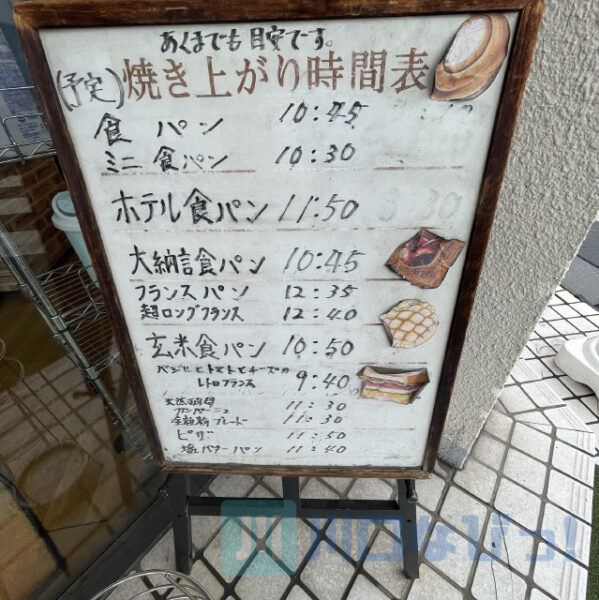 あくまでも目安です。
(予定)焼き上がり時間表
食パン 10:45
ミニ食パン 10:30
ホテル食パン 11:50
大納言食パン 10:45
フランスパン 12:35
超ロングフランス 12:40
玄米食パン 10:50
バジルとトマトとチーズの
レトロフランス 9:40
天然酵母
カンパーニュ 11:30
全粒粉ブレード 11:30
ピザ 11:50
塩バターパン 11:40
川口なびっ!